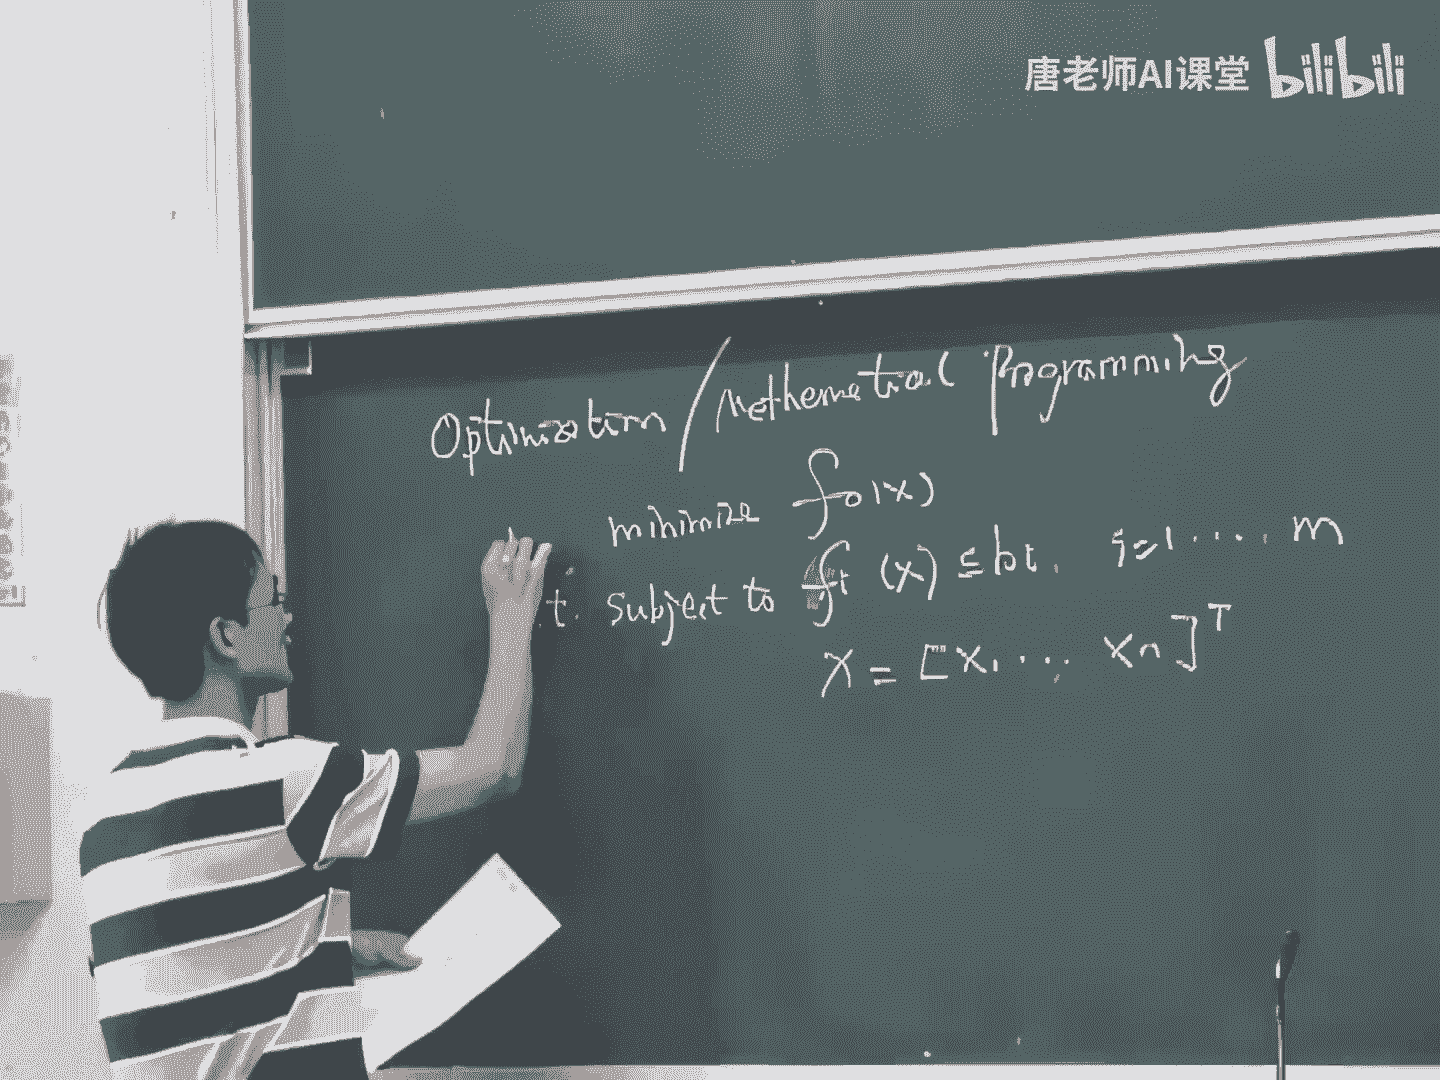 唐老师AI课堂 bilibili
Optimization / Mathematical Programming
minimize f₀(x)
.t. subject to fi (x) ≤ bi. i=1 .... m
X = [x₁ ... xn]ᵀ